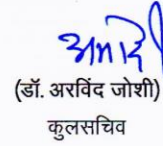 (डॉ. अरविंद जोशी)
कुलसचिव